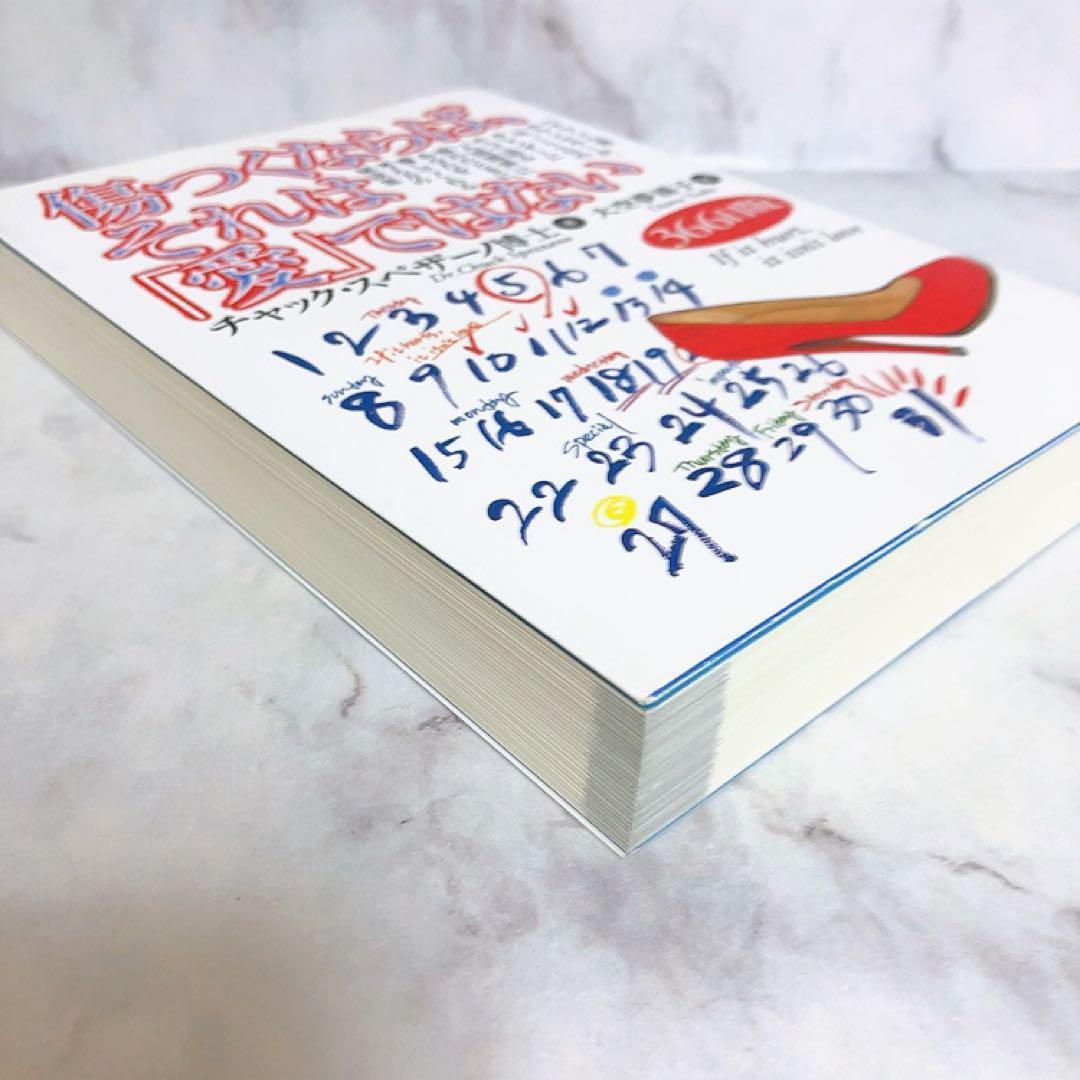 傷つくならば、
それは
「愛」ではない
チャック・スペザーノ博士 著 大空夢湧子 訳
Dr. Chuck Spezzano
366日版
If it hurts,
it isn't love
1 2 3 4 5 6 7
Thursday
If it hurts,
it isn't love
8 9 10 11 12 13 14
sunday
monday
wednesday
15 16 17 18 19
special
22 23 24 25 26
Thursday Friday
28 29 30 31